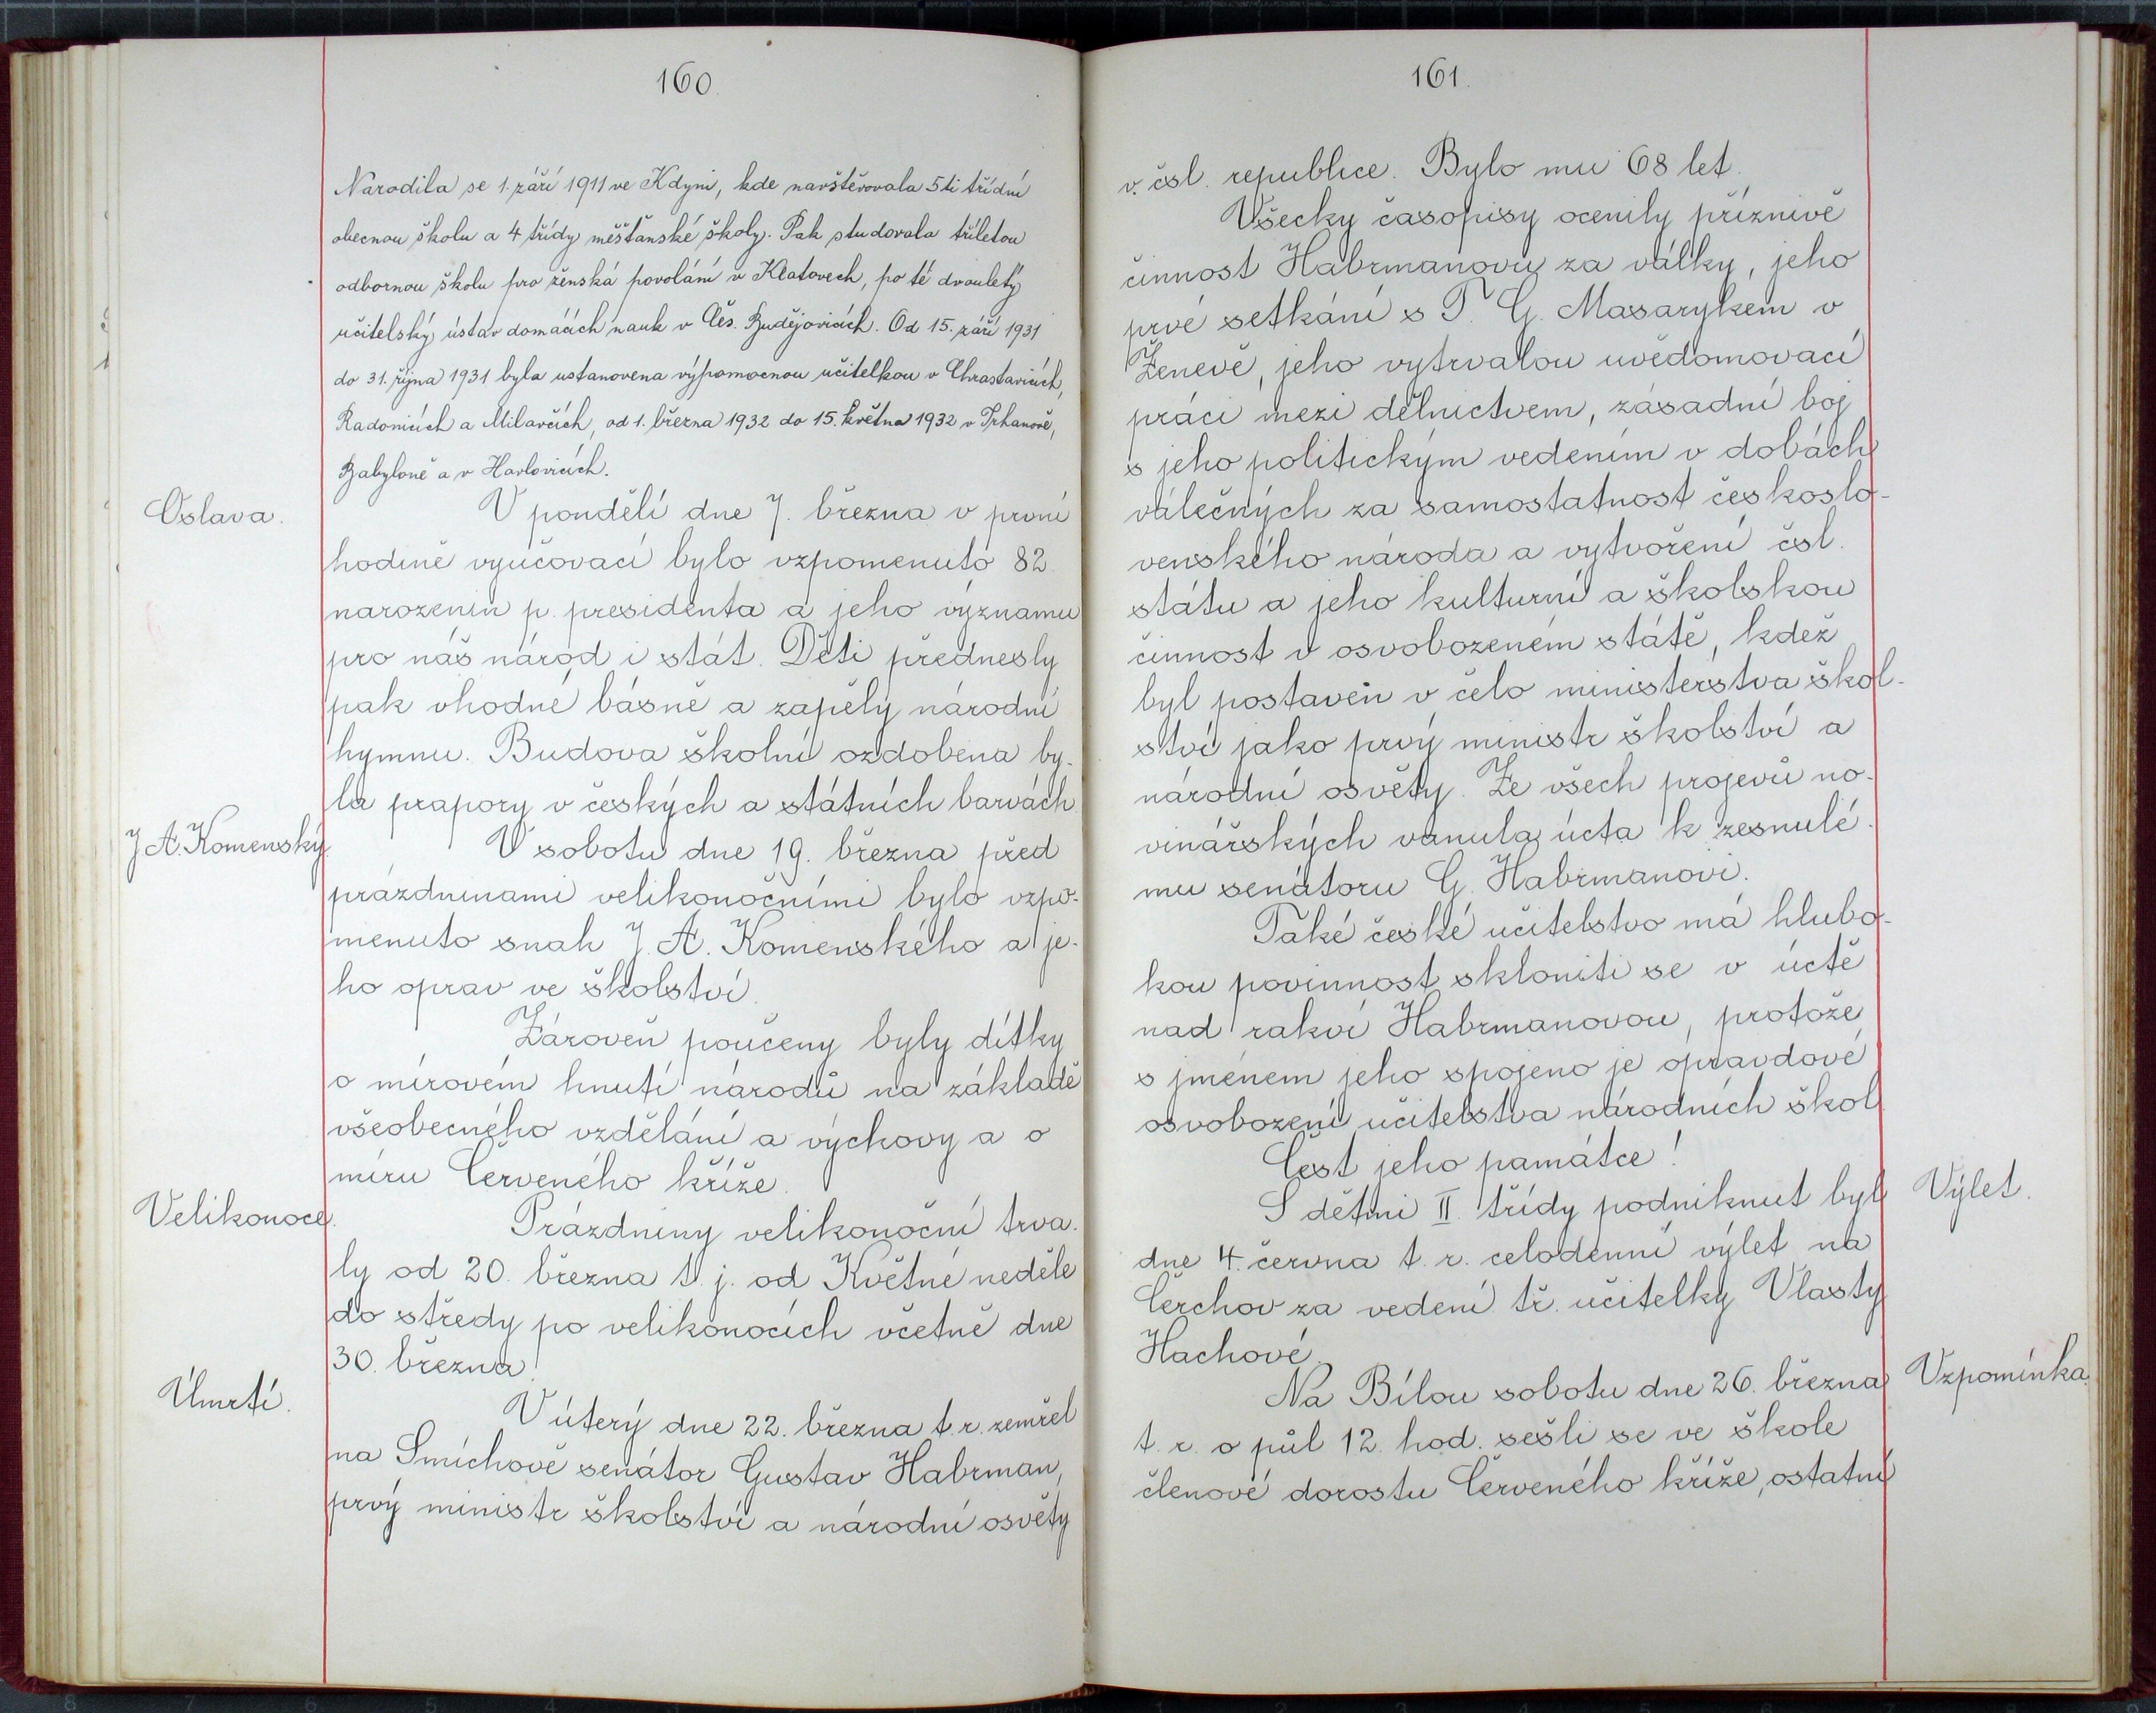 160.
Narodila se 1. září 1911 ve Kdyni, kde navštěvovala 5ti třídní
obecnou školu a 4 třídy měšťanské školy. Pak studovala tříletou
odbornou školu pro ženská povolání v Klatovech, po té dvouletý
učitelský ústav domácích nauk v Čes. Budějovicích. Od 15. září 1931
do 31. října 1931 byla ustanovena výpomocnou učitelkou v Chrastavicích,
Radonicích a Milavčích, od 1. března 1932 do 15. května 1932 v Trhanově,
Babyloně a v Havlovicích.
Oslava.
V pondělí dne 7. března v první
hodině vyučovací bylo vzpomenuto 82.
narozenin p. presidenta a jeho významu
pro náš národ i stát. Děti přednesly
pak vhodné básně a zapěly národní
hymnu. Budova školní ozdobena by-
la prapory v českých a státních barvách.
J. A. Komenský.
V sobotu dne 19. března před
prázdninami velikonočními bylo vzpo-
menuto snah J. A. Komenského a je-
ho oprav ve školství.
Zároveň poučeny byly dítky
o mírovém hnutí národů na základě
všeobecného vzdělání a výchovy a o
míru Červeného kříže.
Velikonoce.
Prázdniny velikonoční trva-
ly od 20. března t. j. od Květné neděle
do středy po velikonocích včetně dne
30. března.
Úmrtí.
V úterý dne 22. března t. r. zemřel
na Smíchově senátor Gustav Habrman,
prvý ministr školství a národní osvěty
161.
v. čsl. republice. Bylo mu 68 let.
Všecky časopisy ocenily příznivě
činnost Habrmanovu za války, jeho
prvé setkání s T. G. Masarykem v
Ženevě, jeho vytrvalou uvědomovací
práci mezi dělnictvem, zásadní boj
s jeho politickým vedením v dobách
válečných za samostatnost českoslo-
venského národa a vytvoření čsl.
státu a jeho kulturní a školskou
činnost v osvobozeném státě, kdež
byl postaven v čelo ministerstva škol-
ství jako prvý ministr školství a
národní osvěty. Ze všech projevů no-
vinářských vanula úcta k zesnulé-
mu senátoru G. Habrmanovi.
Také české učitelstvo má hlubo-
kou povinnost skloniti se v úctě
nad rakví Habrmanovou, protože
s jménem jeho spojeno je opravdové
osvobození učitelstva národních škol.
Čest jeho památce!
S dětmi II. třídy podniknut byl
Výlet.
dne 4. června t. r. celodenní výlet na
Čerchov za vedení tř. učitelky Vlasty
Hachové.
Na Bílou sobotu dne 26. března
Vzpomínka.
t. r. o půl 12. hod. sešli se ve škole
členové dorostu Červeného kříže, ostatní